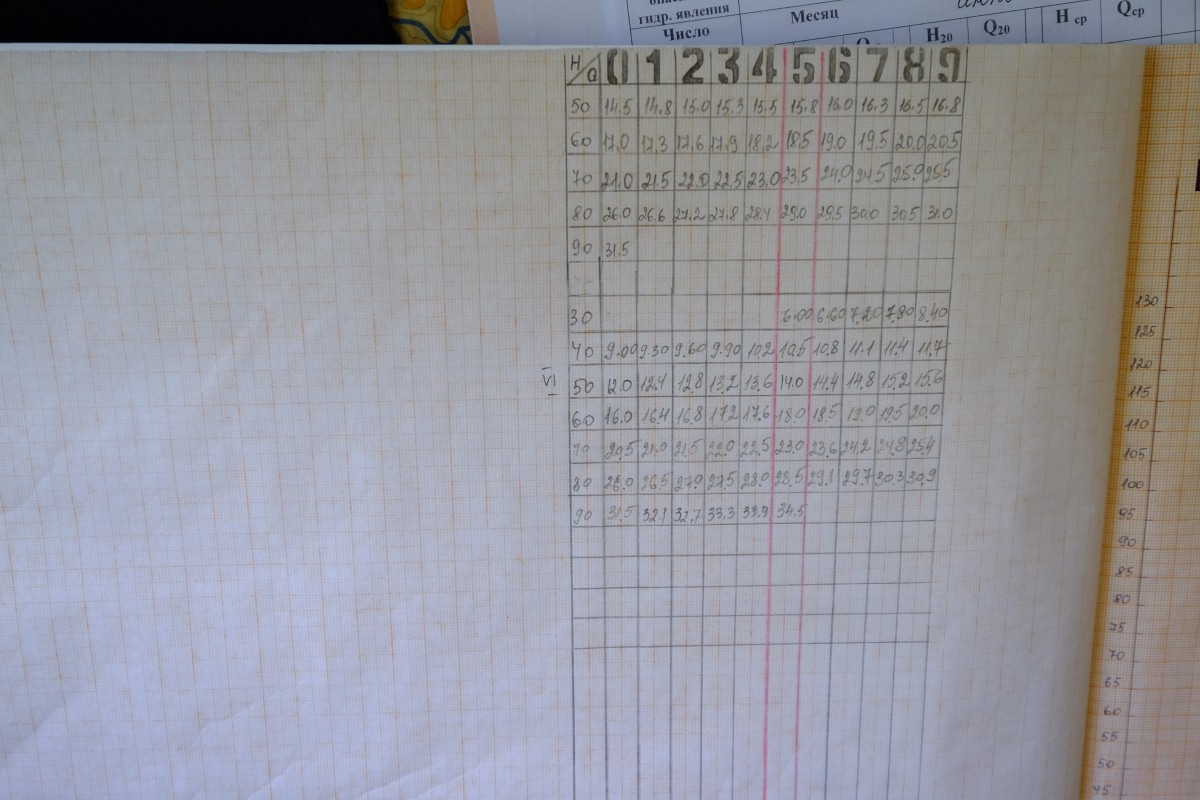 гидр. явления
Месяц
Число
H20 Q20
H ср Qср
H/Q 0 1 2 3 4 5 6 7 8 9
50 14.5 14.8 15.0 15.3 15.5 15.8 16.0 16.3 16.5 16.8
60 17.0 17.3 17.6 17.9 18.2 18.5 19.0 19.5 20.0 20.5
70 21.0 21.5 22.0 22.5 23.0 23.5 24.0 24.5 25.0 25.5
80 26.0 26.6 27.2 27.8 28.4 29.0 29.5 30.0 30.5 31.0
90 31.5
30 6.00 6.60 7.20 7.80 8.40
40 9.00 9.30 9.60 9.90 10.2 10.5 10.8 11.1 11.4 11.7
VI
50 12.0 12.4 12.8 13.2 13.6 14.0 14.4 14.8 15.2 15.6
60 16.0 16.4 16.8 17.2 17.6 18.0 18.5 19.0 19.5 20.0
70 20.5 21.0 21.5 22.0 22.5 23.0 23.6 24.2 24.8 25.4
80 26.0 26.5 27.0 27.5 28.0 28.5 29.1 29.7 30.3 30.9
90 31.5 32.1 32.7 33.3 33.9 34.5
130
125
120
115
110
105
100
95
90
85
80
75
70
65
60
55
50
45